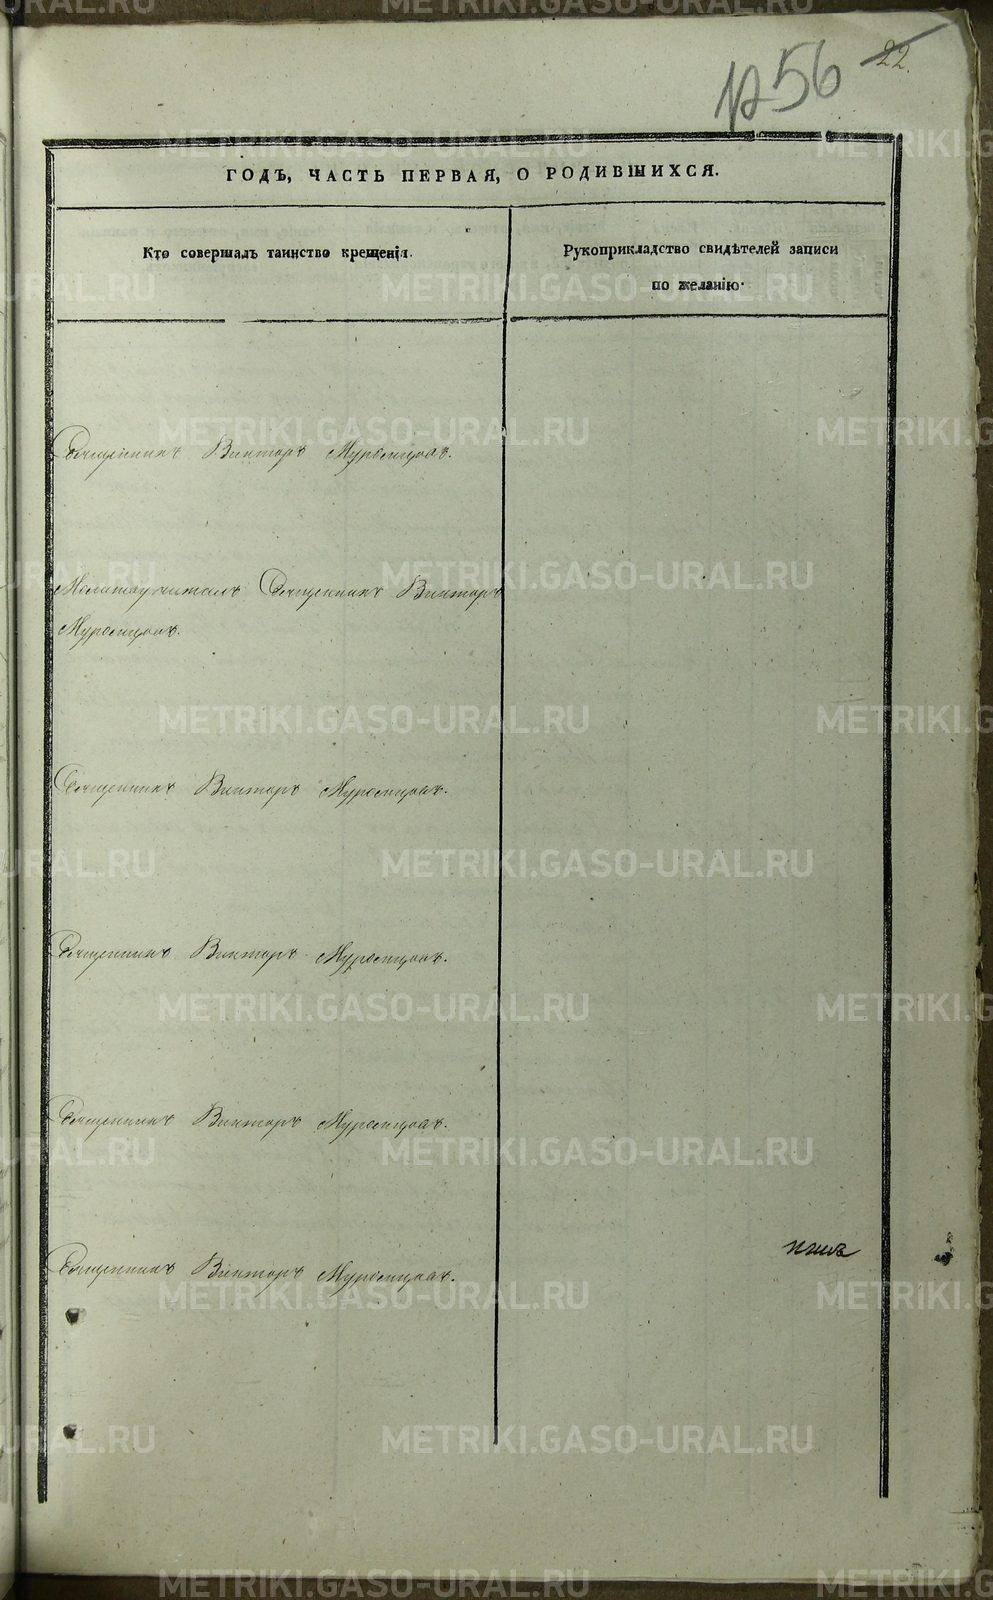 22.
1256
ГОДЪ, ЧАСТЬ ПЕРВАЯ, О РОДИВШИХСЯ.
Кто совершалъ таинство крещенія.
Рукоприкладство свидѣтелей записи
по желанію.
Священникъ Викторъ Муромцовъ.
Молитвоучитель Священникъ Викторъ
Муромцовъ.
Священникъ Викторъ Муромцовъ.
Священникъ Викторъ Муромцовъ.
Священникъ Викторъ Муромцовъ.
Священникъ Викторъ Муромцовъ.
METRIKI.GASO-URAL.RU